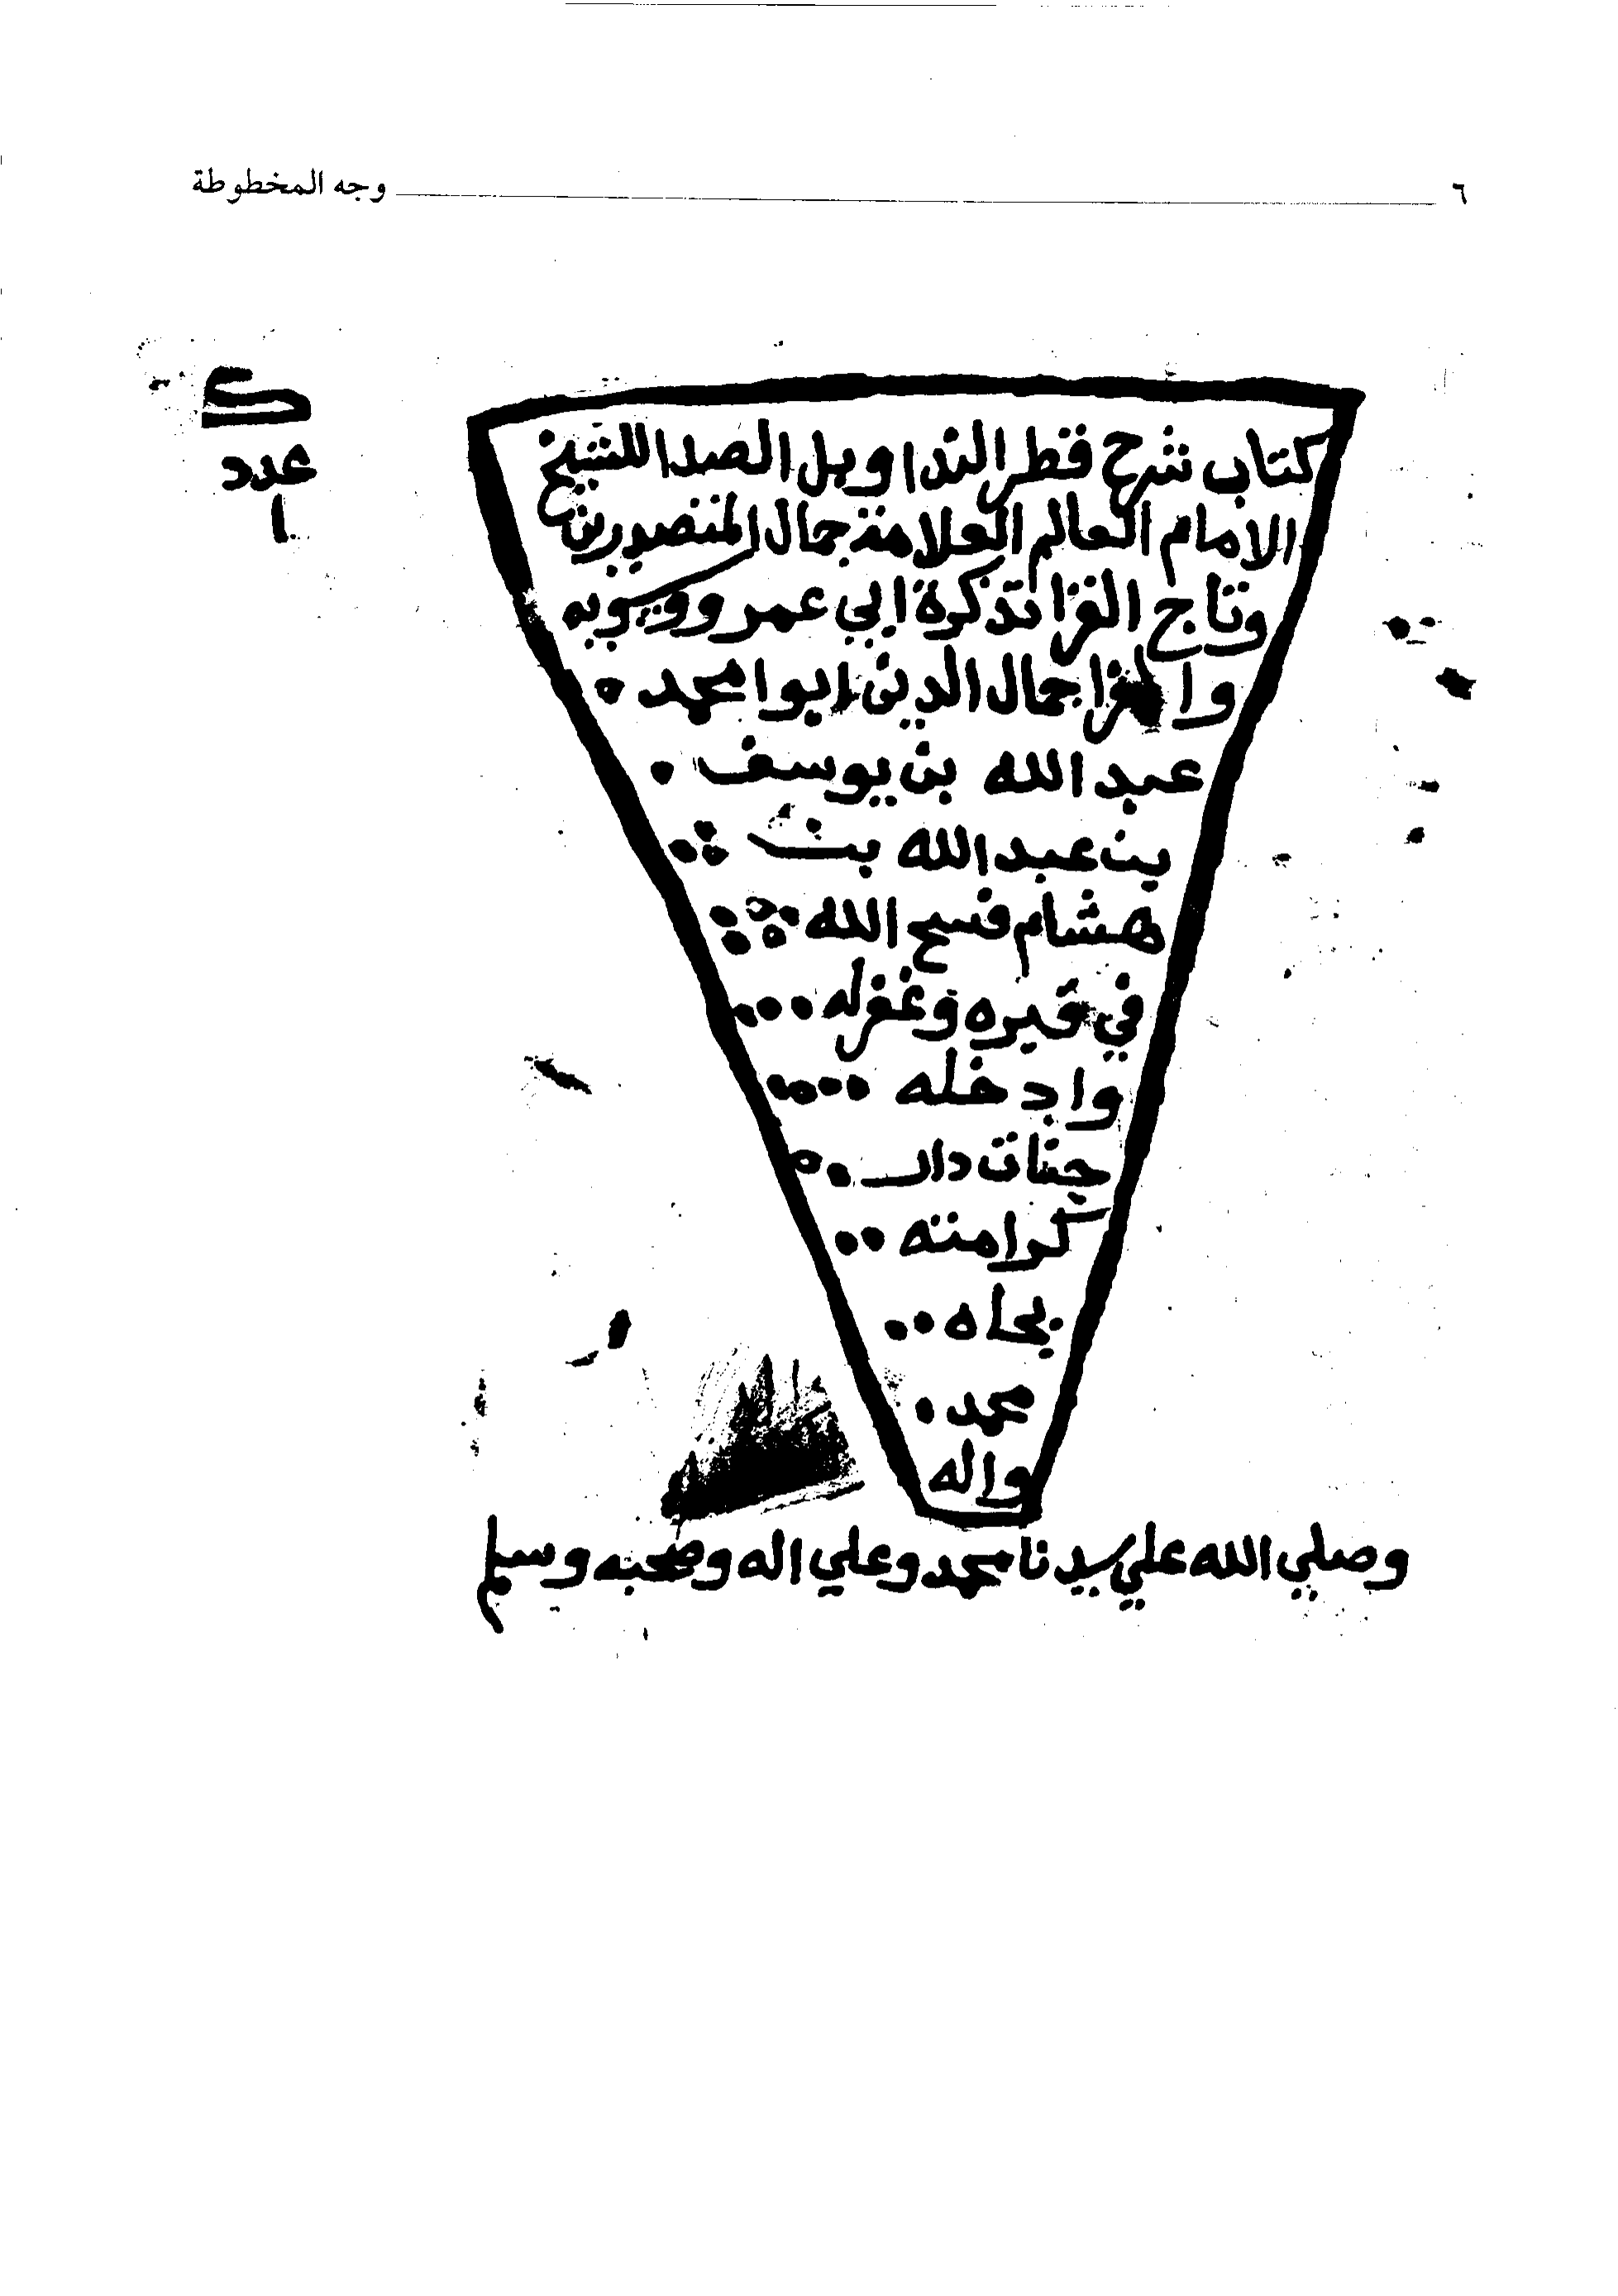 ٦ وجه المخطوطة
ك
عدد
١
كتاب شرح قطر الندا وبل الصدا للشيخ
الامام العالم العلامة جمال المتصدرين
وتاج القرا تذكرة ابي عمرو وسيبويه
والفرا جمال الدين ابوا محمد
عبد الله بن يوسف
بن عبد الله بن
هشام فسح الله
في قبره وغفر له
وادخله
جنات دار
كرامته
بجاه
محمد
واله
وصلي الله علي سيدنا محمد وعلي اله وصحبه وسلم